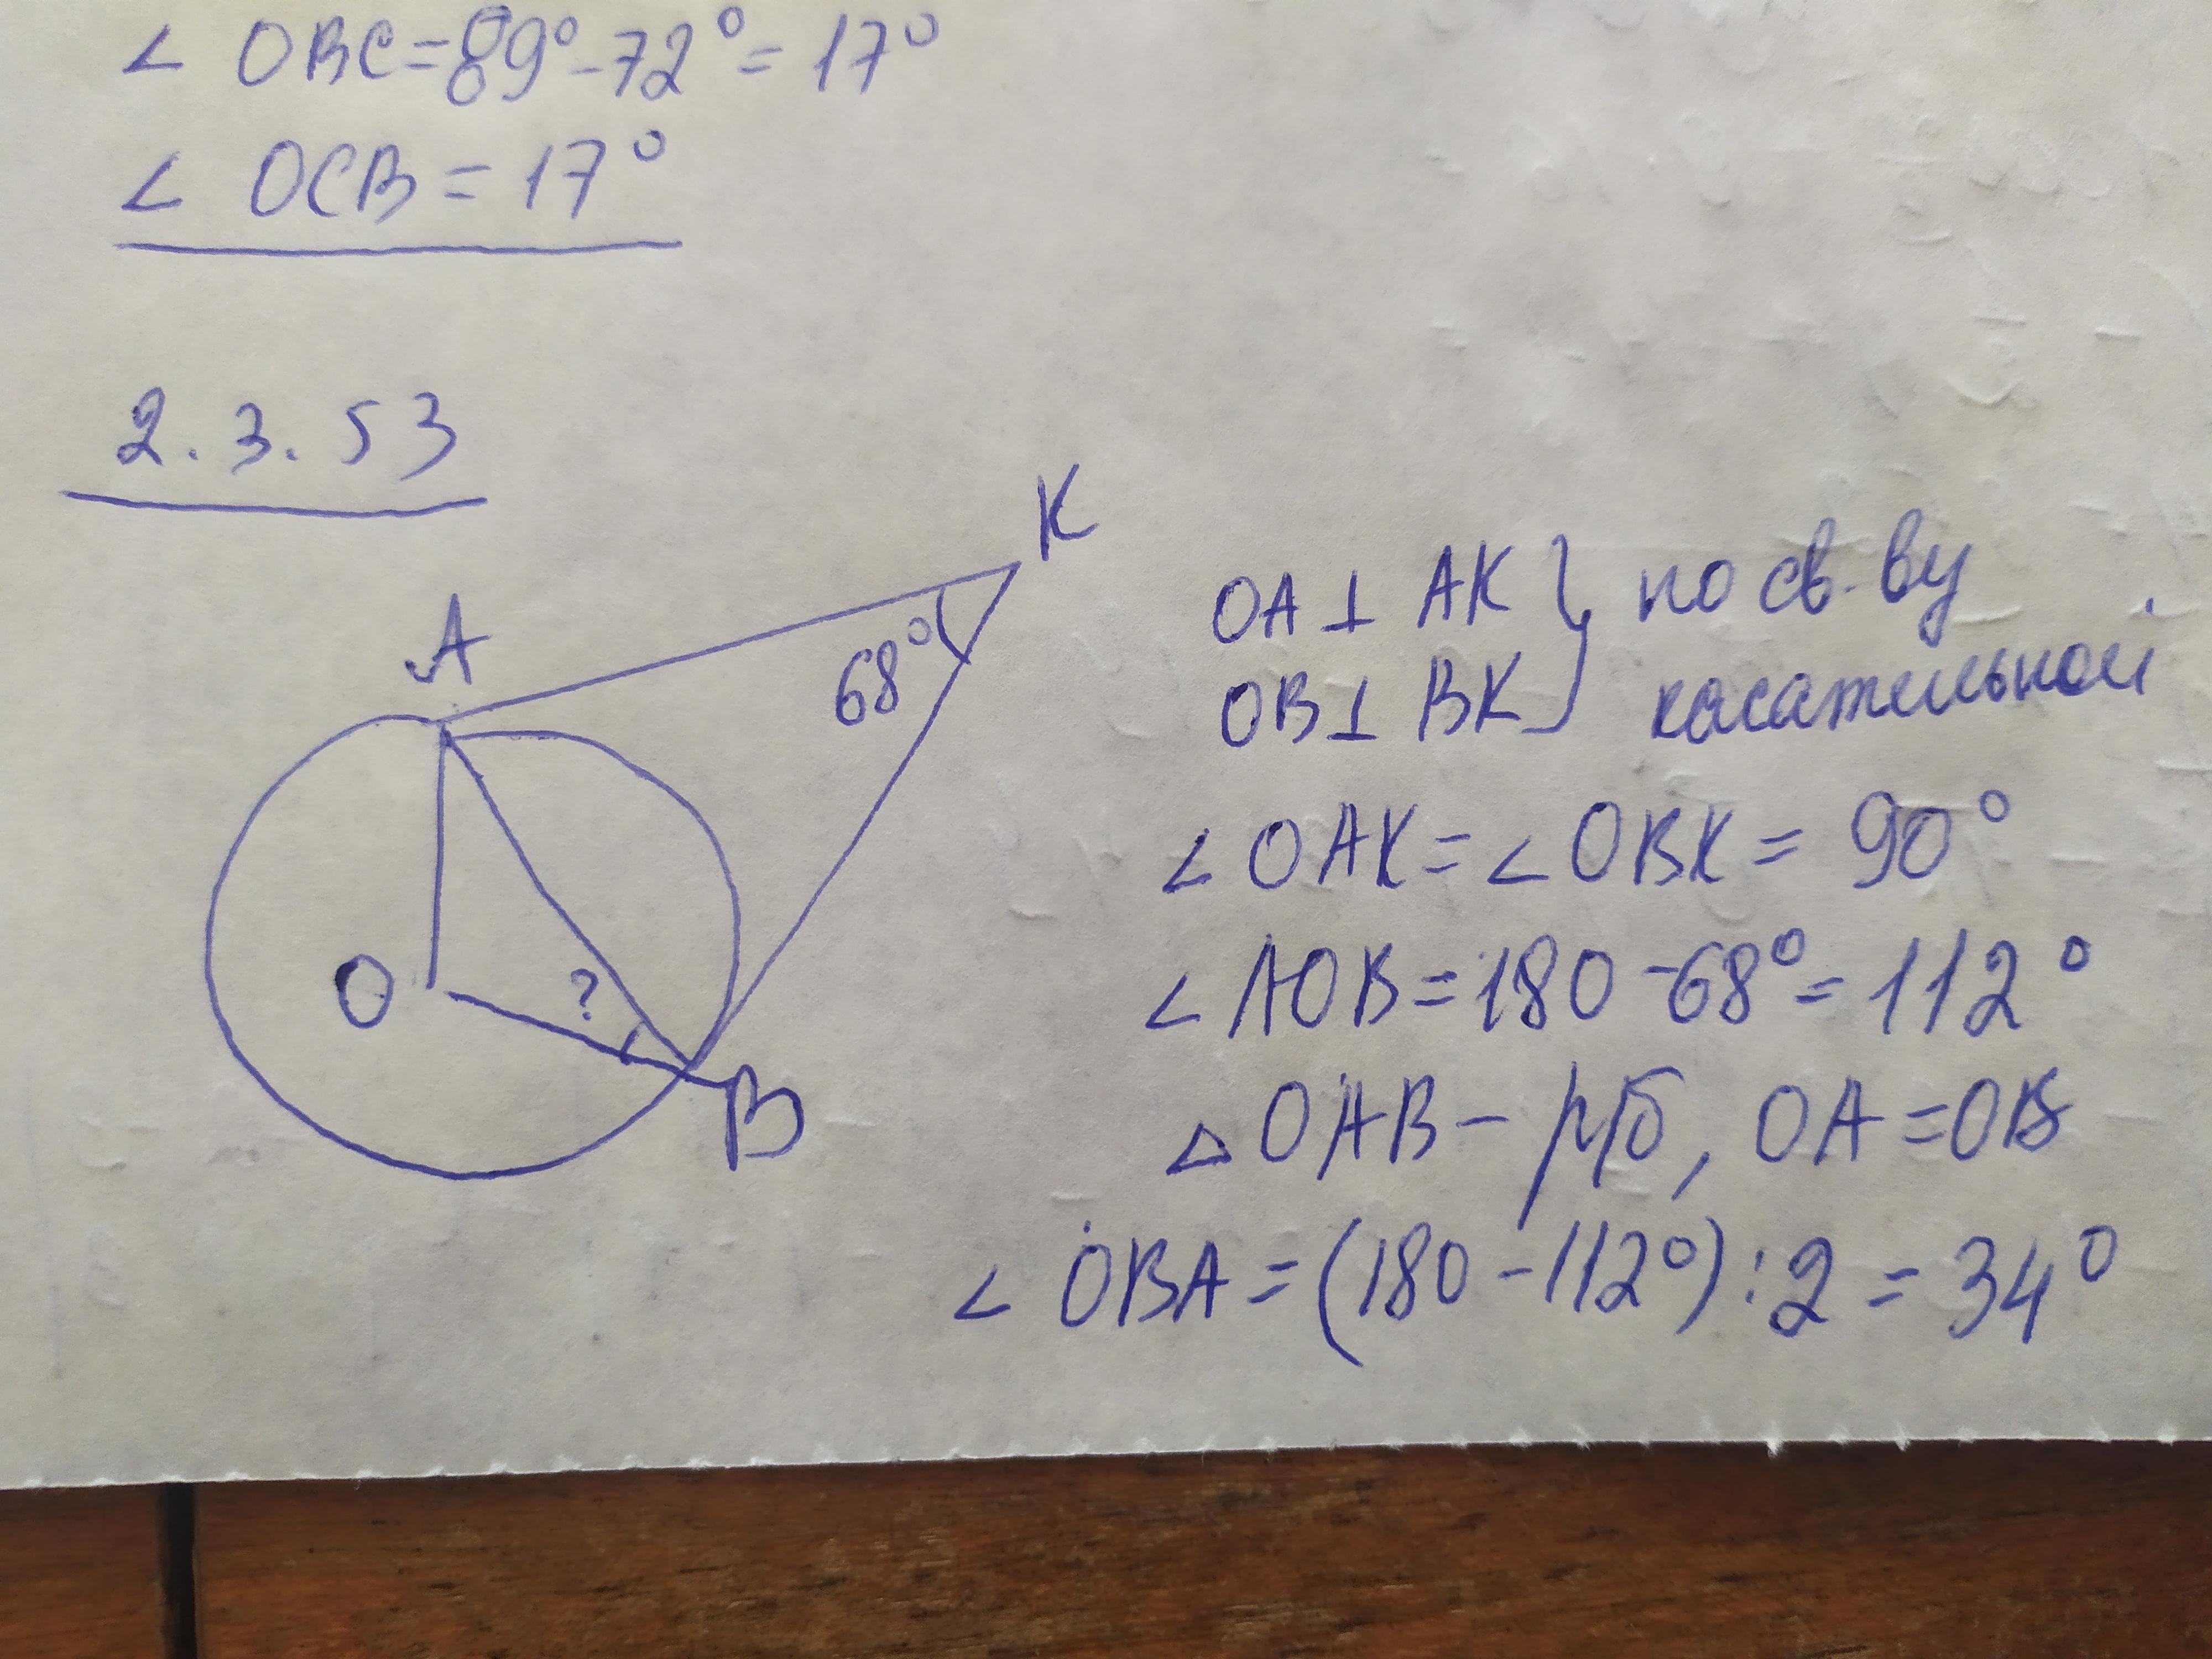 ∠ OBC = 89° - 72° = 17°
∠ OCB = 17°
2.3.53
K
A
68°
O
?
B
OA ⊥ AK } по св-ву
OB ⊥ BK } касательной
∠ OAK = ∠ OBK = 90°
∠ AOB = 180 - 68° = 112°
△ OAB - р/б, OA = OB
∠ OBA = (180 - 112°) : 2 = 34°